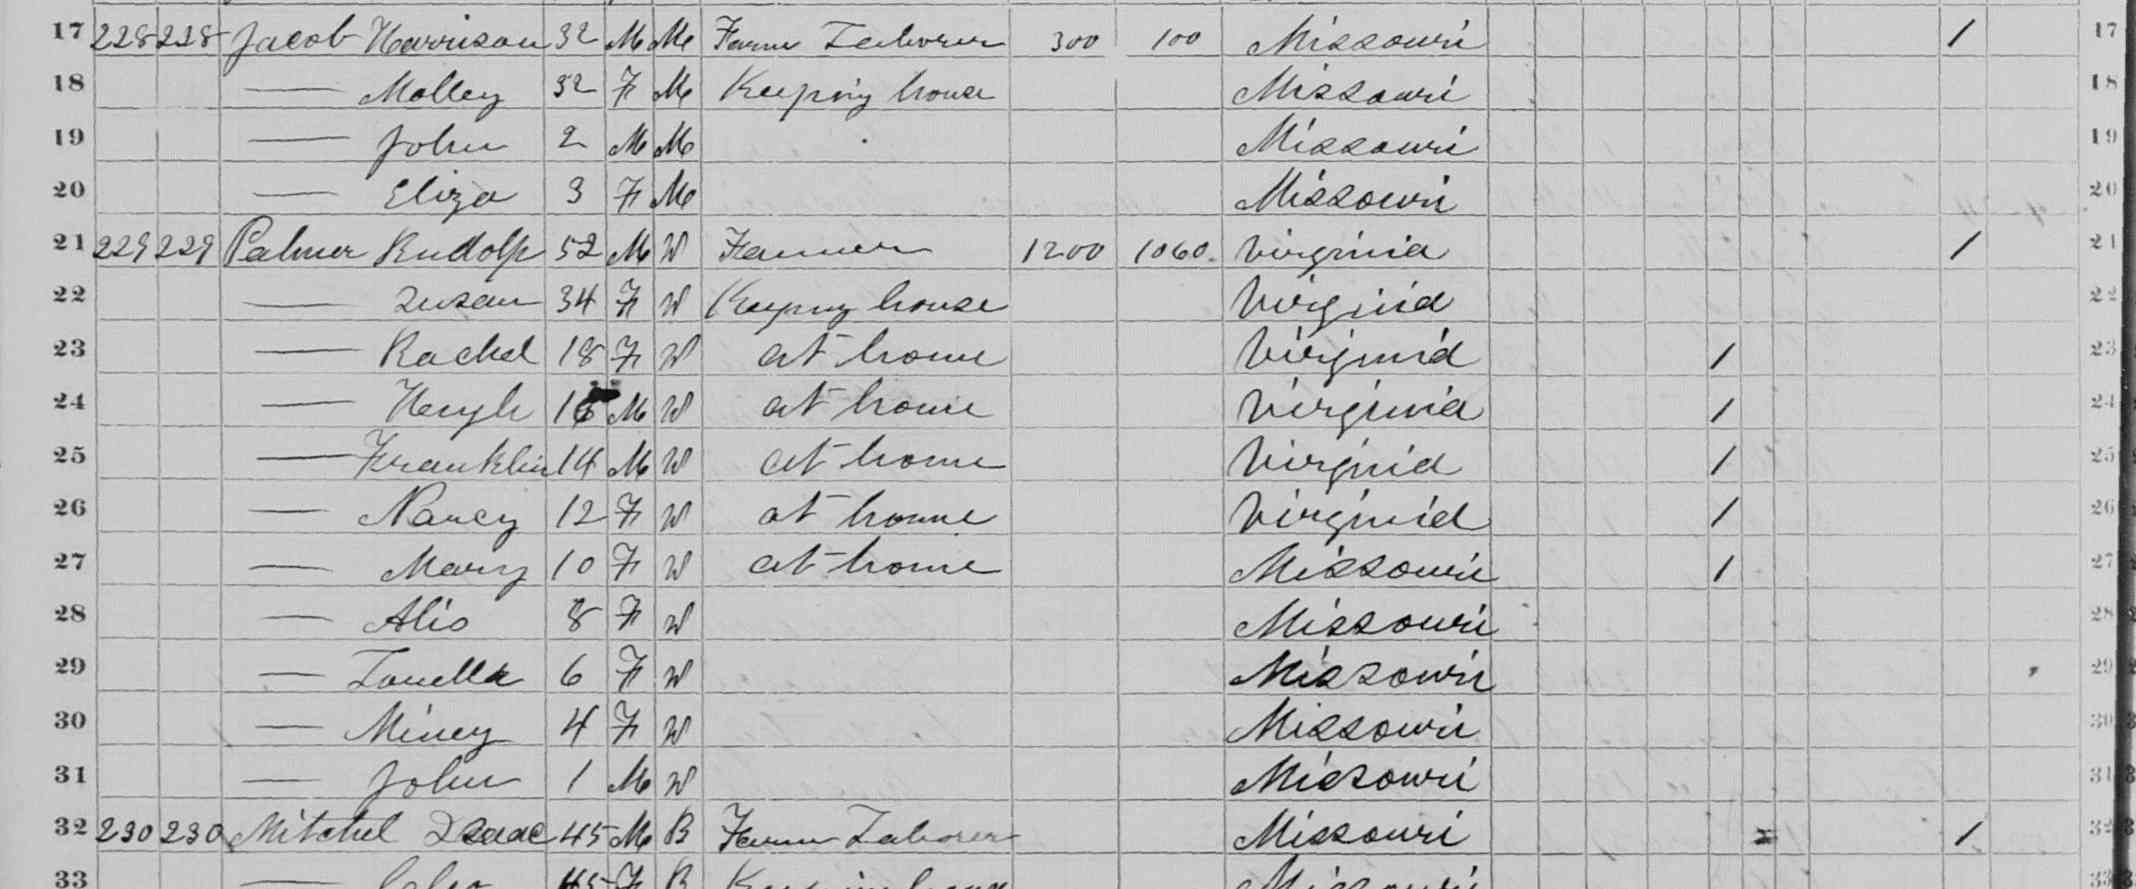 17 228 228 Jacob Harrison 32 M M Farm Laborer 300 100 Missouri / 17
18 — Molley 32 F M Keeping house Missouri 18
19 — John 2 M M Missouri 19
20 — Eliza 3 F M Missouri 20
21 229 229 Palmer Rudolp 52 M W Farmer 1200 1060 Virginia / 21
22 — Susan 34 F W Keeping house Virginia 22
23 — Rachel 18 F W at home Virginia / 23
24 — 16 M W at home Virginia / 24
25 — Franklin 14 M W at home Virginia / 25
26 — Nancy 12 F W at home Virginia / 26
27 — Mary 10 F W at home Missouri / 27
28 — Alis 8 F W Missouri 28
29 — Louella 6 F W Missouri 29
30 — Mincy 4 F W Missouri 30
31 — John 1 M W Missouri 31
32 230 230 Mitchel Isaac 45 M B Farm Laborer Missouri / 32
33 — 45 F B Keeping house Missouri 33